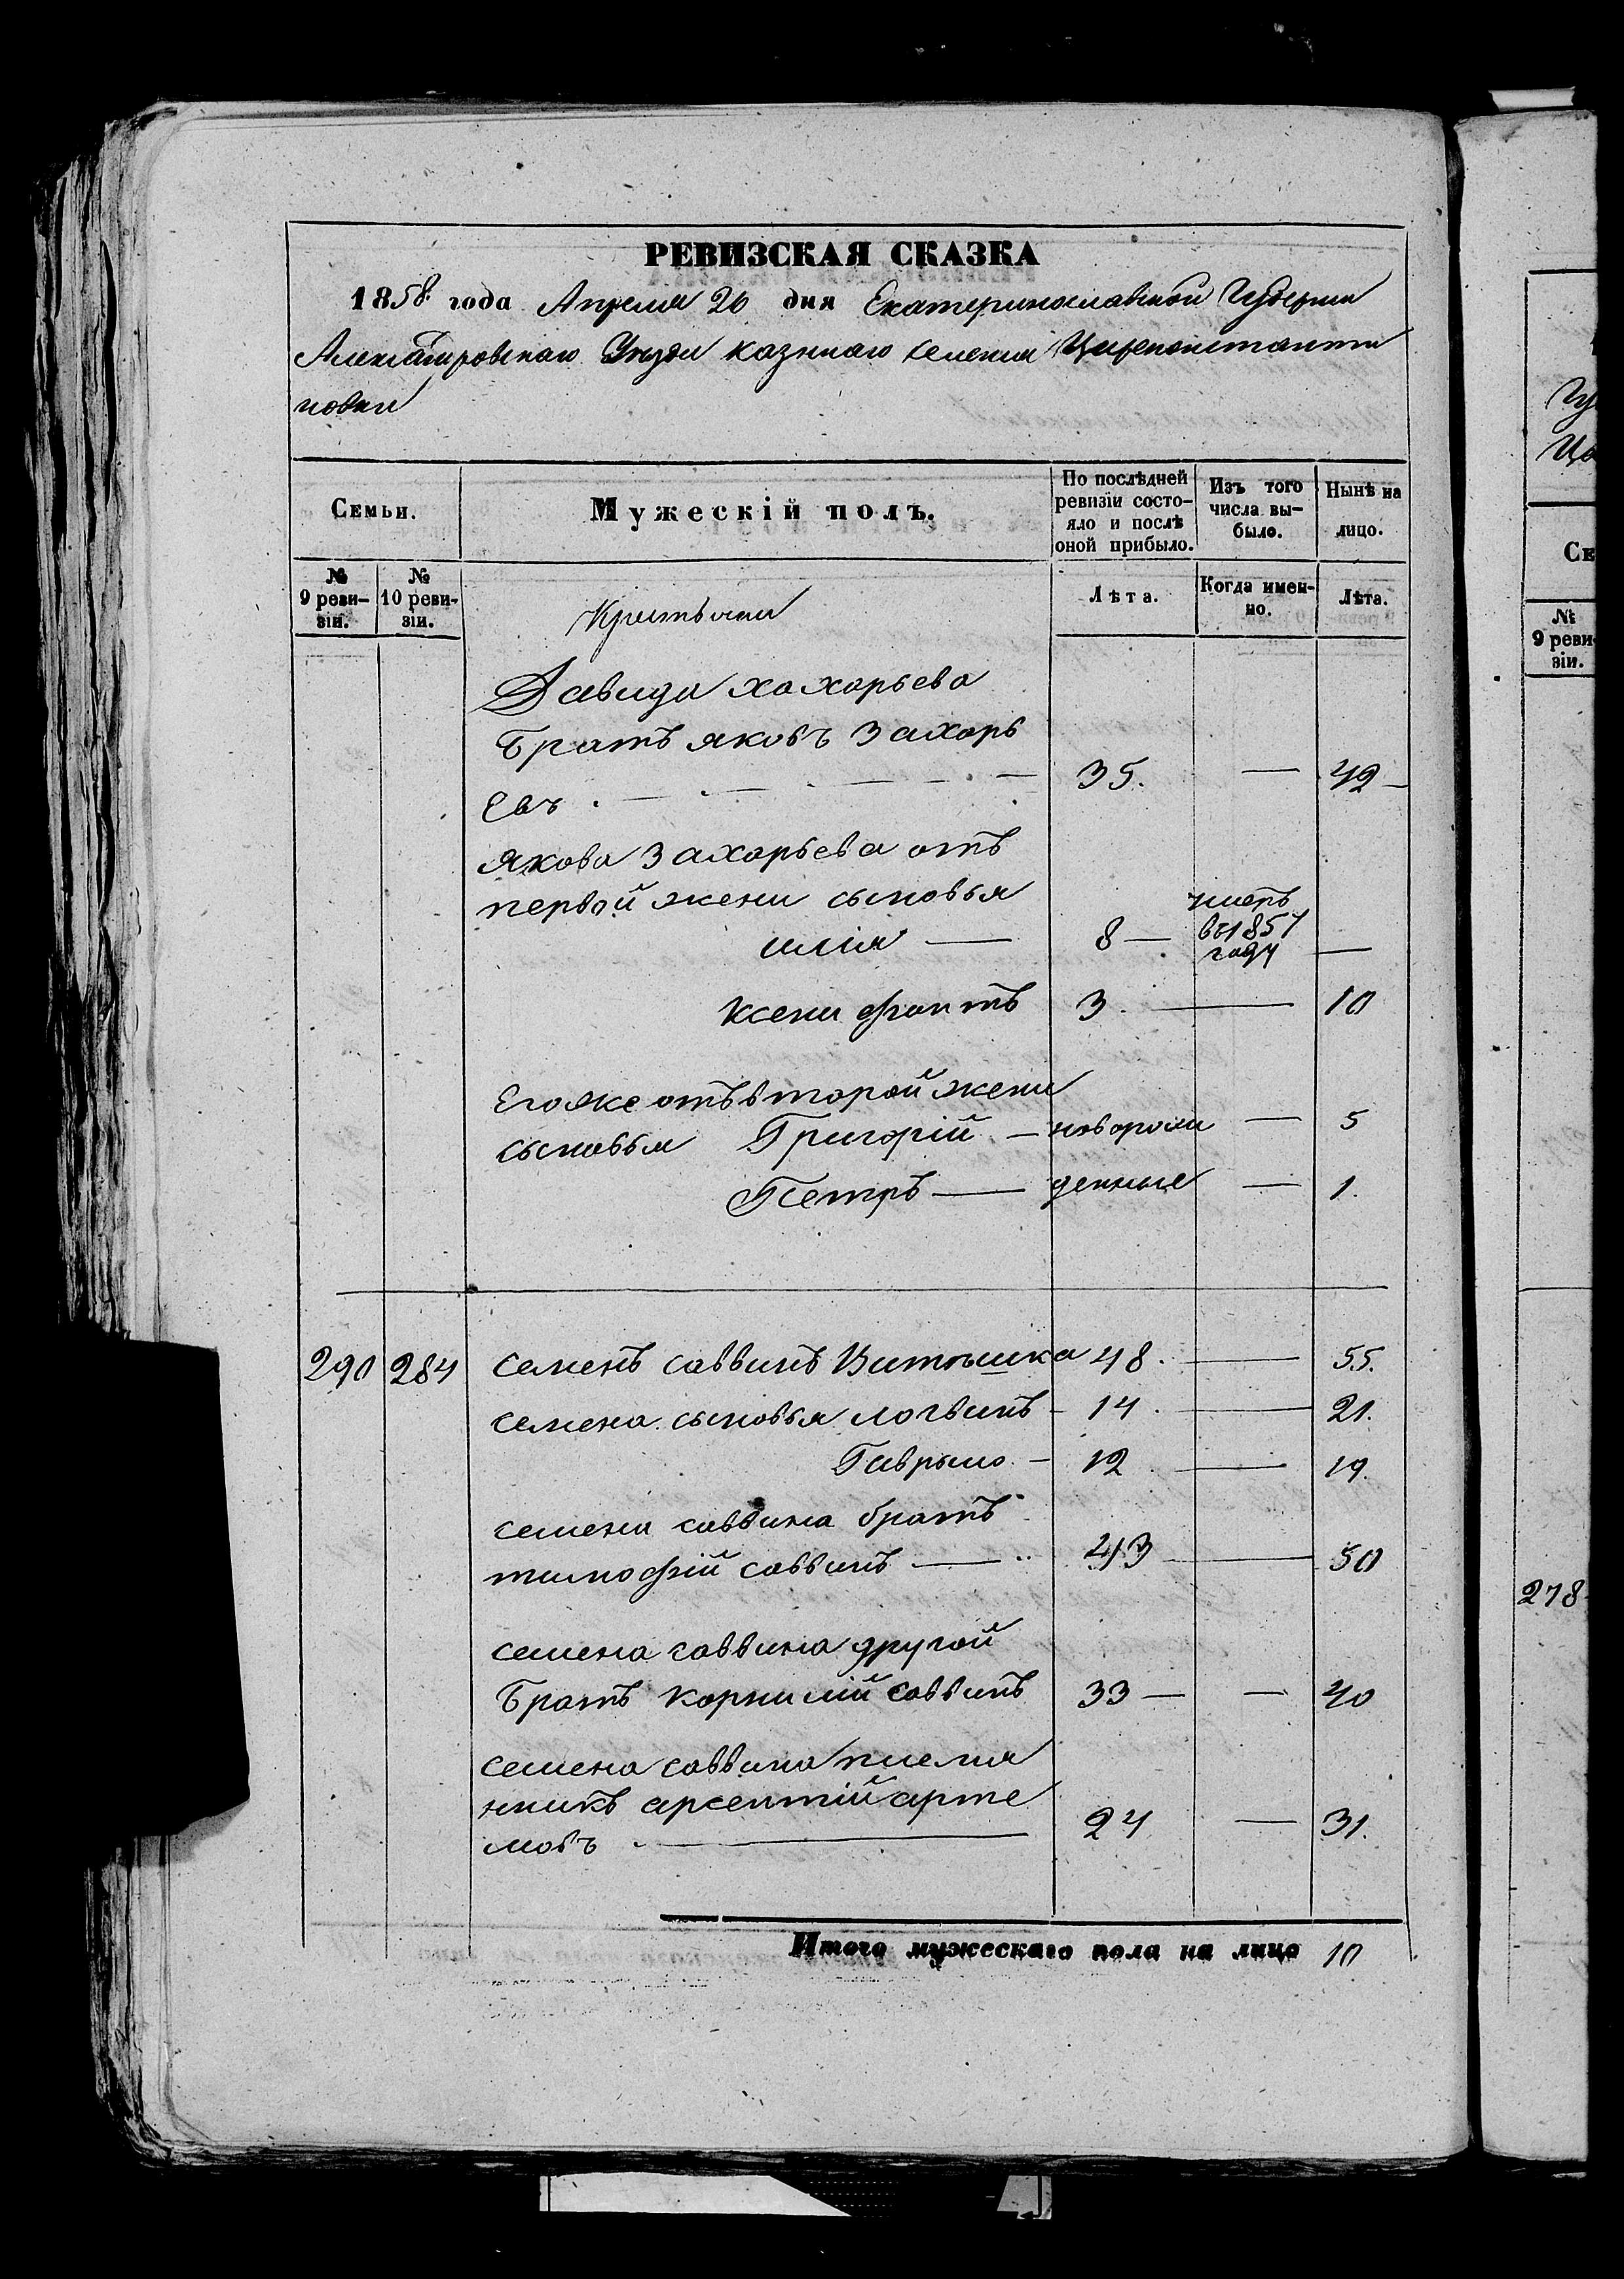 РЕВИЗСКАЯ СКАЗКА
1858. года Апреля 20 дня Екатеринославской Губернии
Александровскаго Уезда казннаго селения Цареконстанти
новки
Семьи.
Мужескій полъ.
По послѣдней ревизіи состо-
яло и послѣ
оной прибыло.
Изъ того
числа вы-
было.
Нынѣ на
лицо.
№
9 реви-
зіи.
№
10 реви-
зіи.
Лѣта.
Когда имен-
но.
Лѣта.
Крестьяни
Давида хахарьева
Братъ яковъ Захарь
евъ 35. — 42
якова Захарьева отъ
первой жени сыновья
илія — 8 — умеръ
въ 1857
году —
Ксенифонтъ 3. — 10
Его же отъ второй жени
сыновья Григорій — новорож — 5
Петръ — денные — 1.
290 284 семенъ саввинъ 48. — 55.
семена сыновья логвинъ — 14. — 21.
Гаврыло — 12 — 19.
семена саввина братъ
тимофій саввинъ — 43 — 50
семена саввина другой
Братъ корнилій саввинъ 33 — — 40
семена саввина племя
нникъ арсентій арте
мовъ — 24 — 31.
Итого мужескаго пола на лицо 10
Гу
Ца
Се
№
9 реви-
зіи.
278